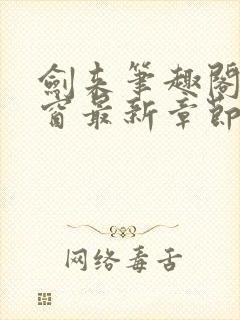 劍来筆趣閣
窗最新章節
网络毒舌